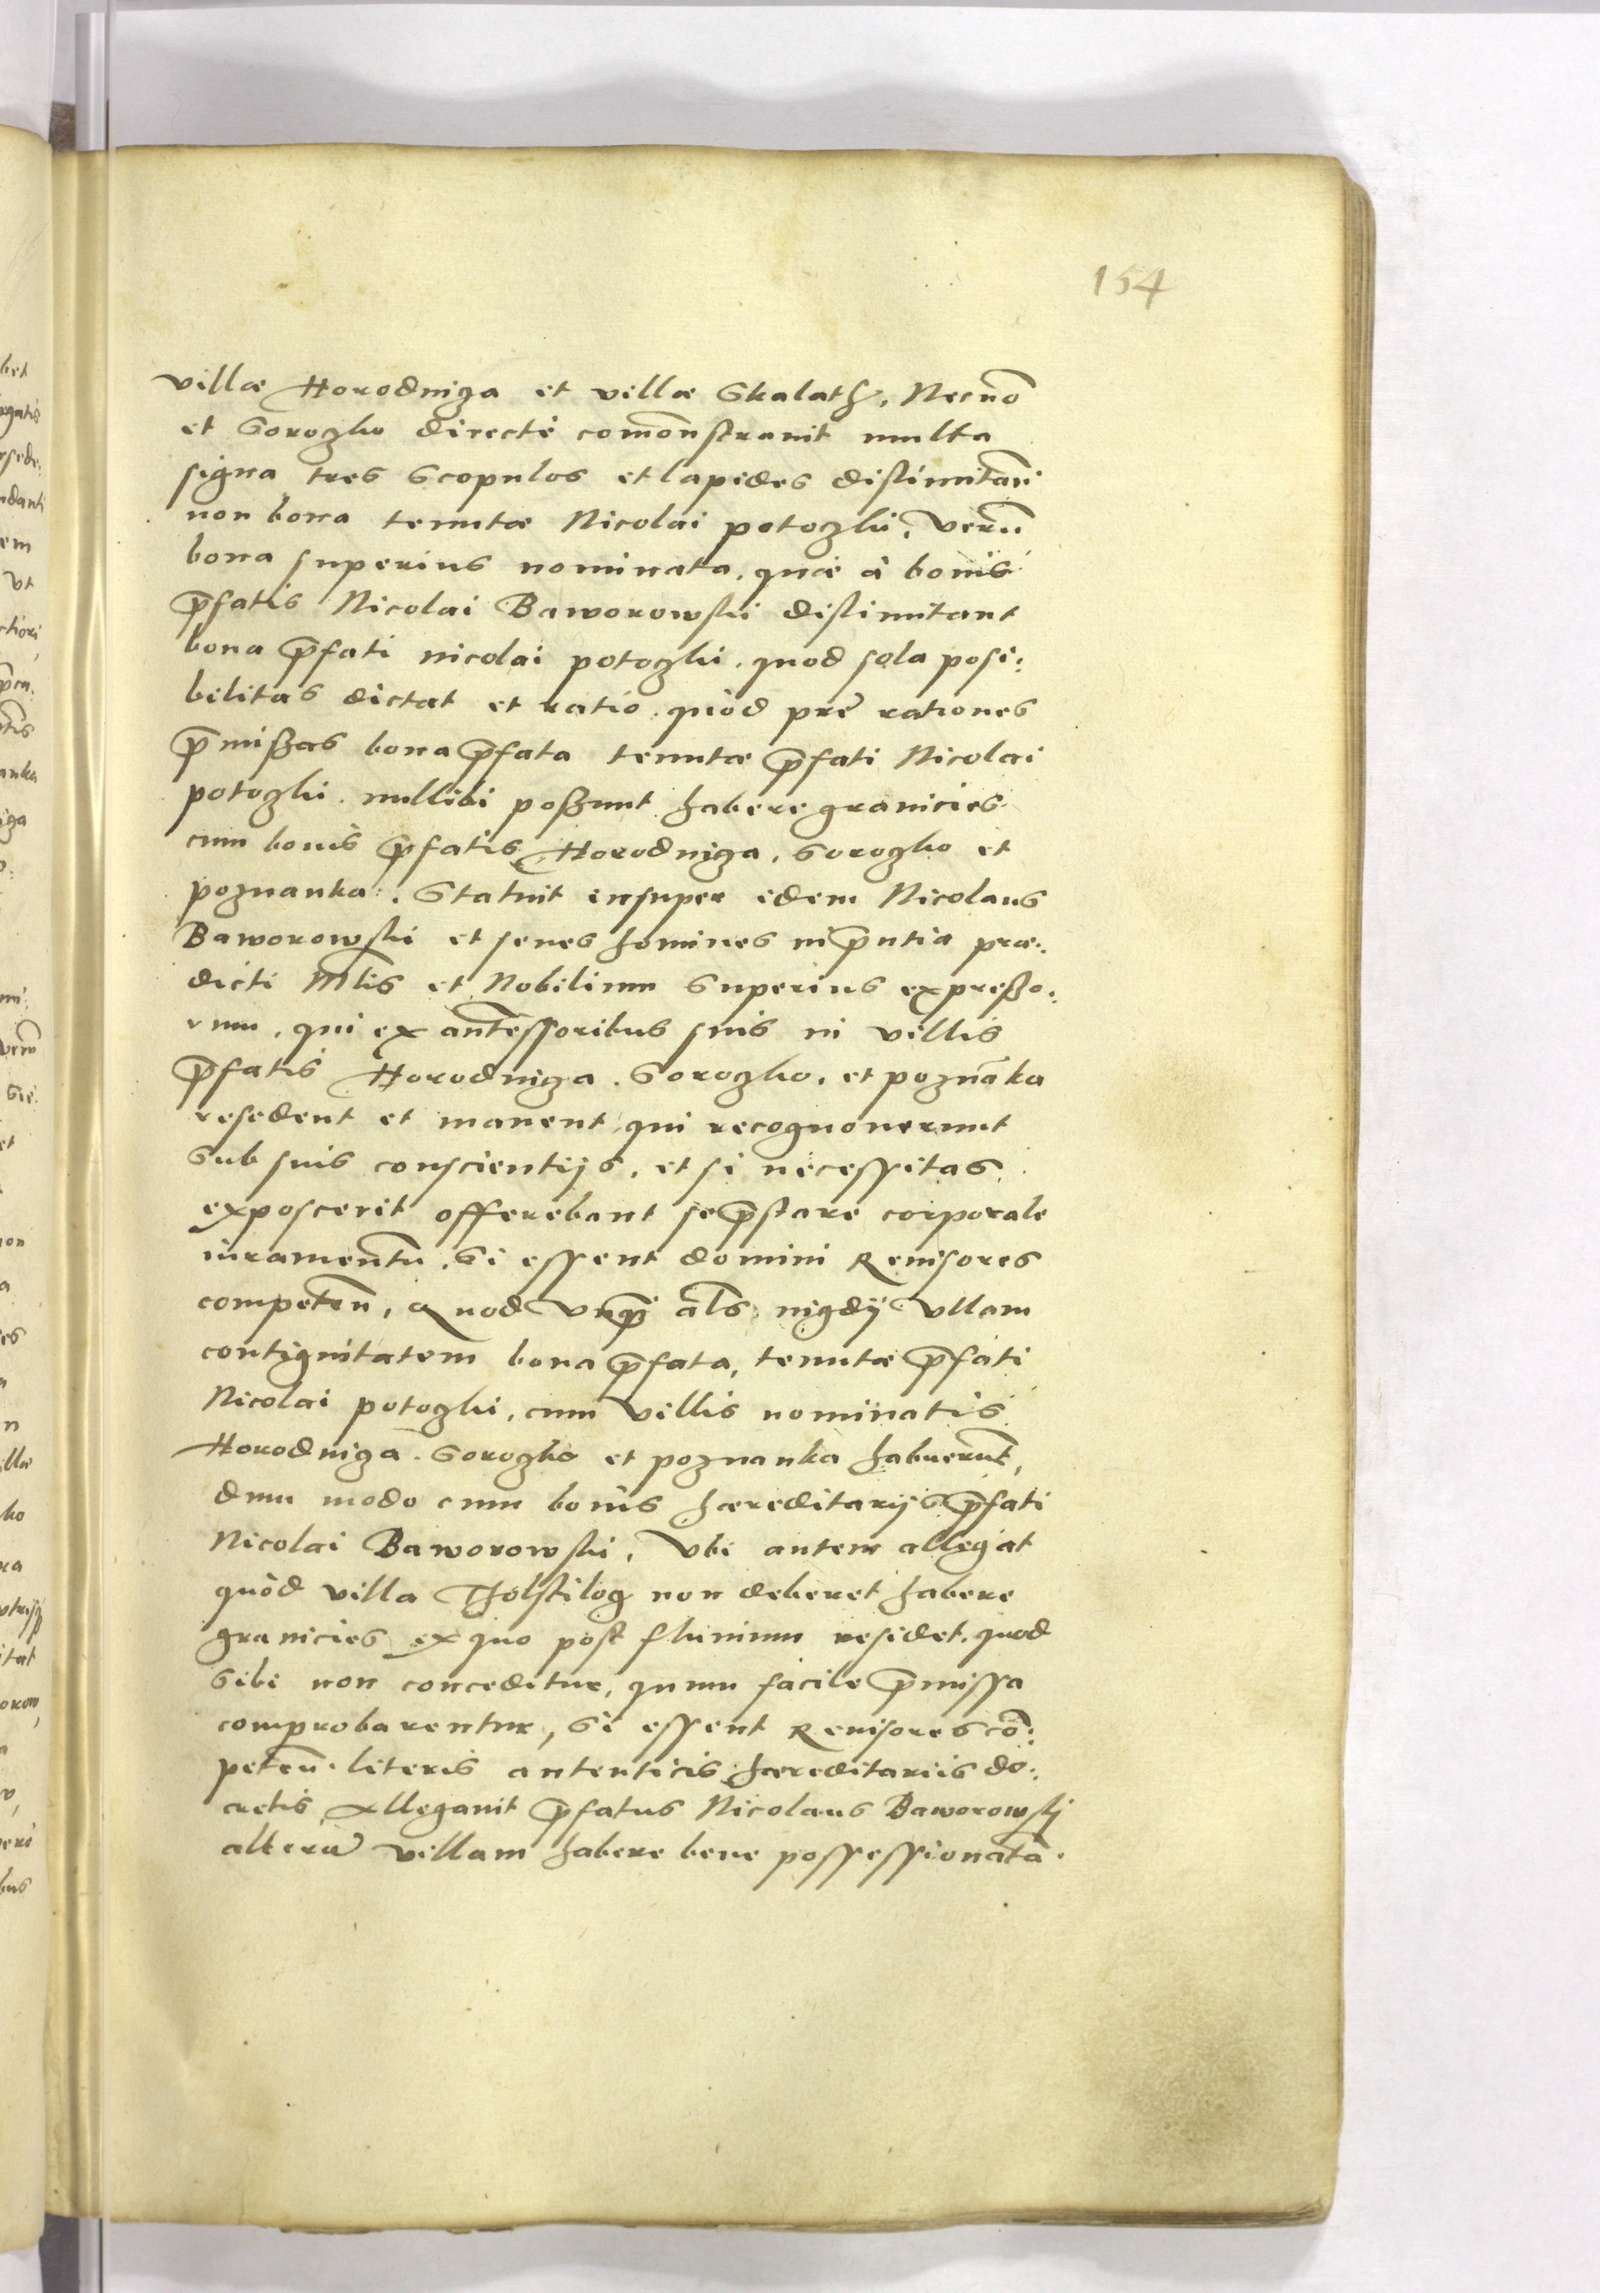 154
villæ Horodniza et villæ Skalath, Necnō
et Soroczko directè comōnstrauit multa
signa tres scopulos et lapides distimitan̄
non bona tenutæ Nicolai potoczki, verū
bona superius nominata, quæ à bonis
p̄fatis Nicolai Baworowski distimitant
bona p̄fati nicolai potoczki, quod sola posi:
bilitas dictat et ratio, quòd præ rationes
p̄mißas bona p̄fata tenutæ p̄fati Nicolai
potoczki, nullibi poßunt habere granicies
cum bonis p̄fatis Horodniza, Soroczko et
poznanka. Statuit insuper idem Nicolaus
Baworowski et senes homines in p̄ntia præ:
dicti Mtis et Nobilium superius expreßo:
rum, qui ex antessoribus suis in villis
p̄fatis Horodniza, Soroczko, et poznāka
resedent et manent, qui recognouerunt
sub suis conscientijs, et si necessitas
exposcerit offerebant se p̄stare corporale
iuramentū. Si essent domini Reuisores
competen̄, Quod vnq̄ als nigdij vllam
contignitatem bona p̄fata, tenutæ p̄fati
Nicolai potoczki, cum villis nominatis
Horodniza. Soroczko et poznanka habuerūt,
dum modo cum bonis hæreditarijs p̄fati
Nicolai Baworowski, Vbi autem allegat
quòd villa Tholstilog non deberet habere
granicies ex quo post fluuium residet, quod
sibi non conceditur, quum facile p̄missa
comprobarentur, si essent Reuisores cō:
peten̄. literis autenticis hæreditariis do:
cretis, Allegauit p̄fatus Nicolaus Baworowskj
alterā villam habere bene possessionatā.